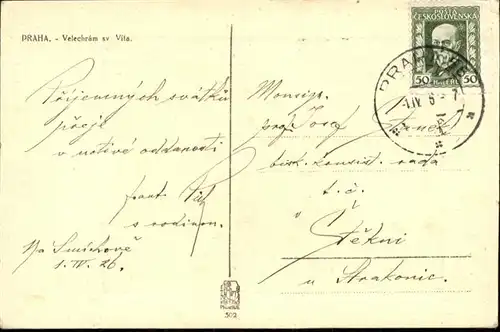 PRAHA. - Velechrám sv Víta.
Příjemných svátků
přeje
v uctivé oddanosti
frant.
s rodinou.
Na Smíchově
1. IV. 26.
POŠTA
ČESKOSLOVENSKÁ
50 50
PRAHA
1.IV 6 - 7
Monsig.
Josef
bisk. konsist. rada
t. č.
Štěkni
u Strakonic.
502